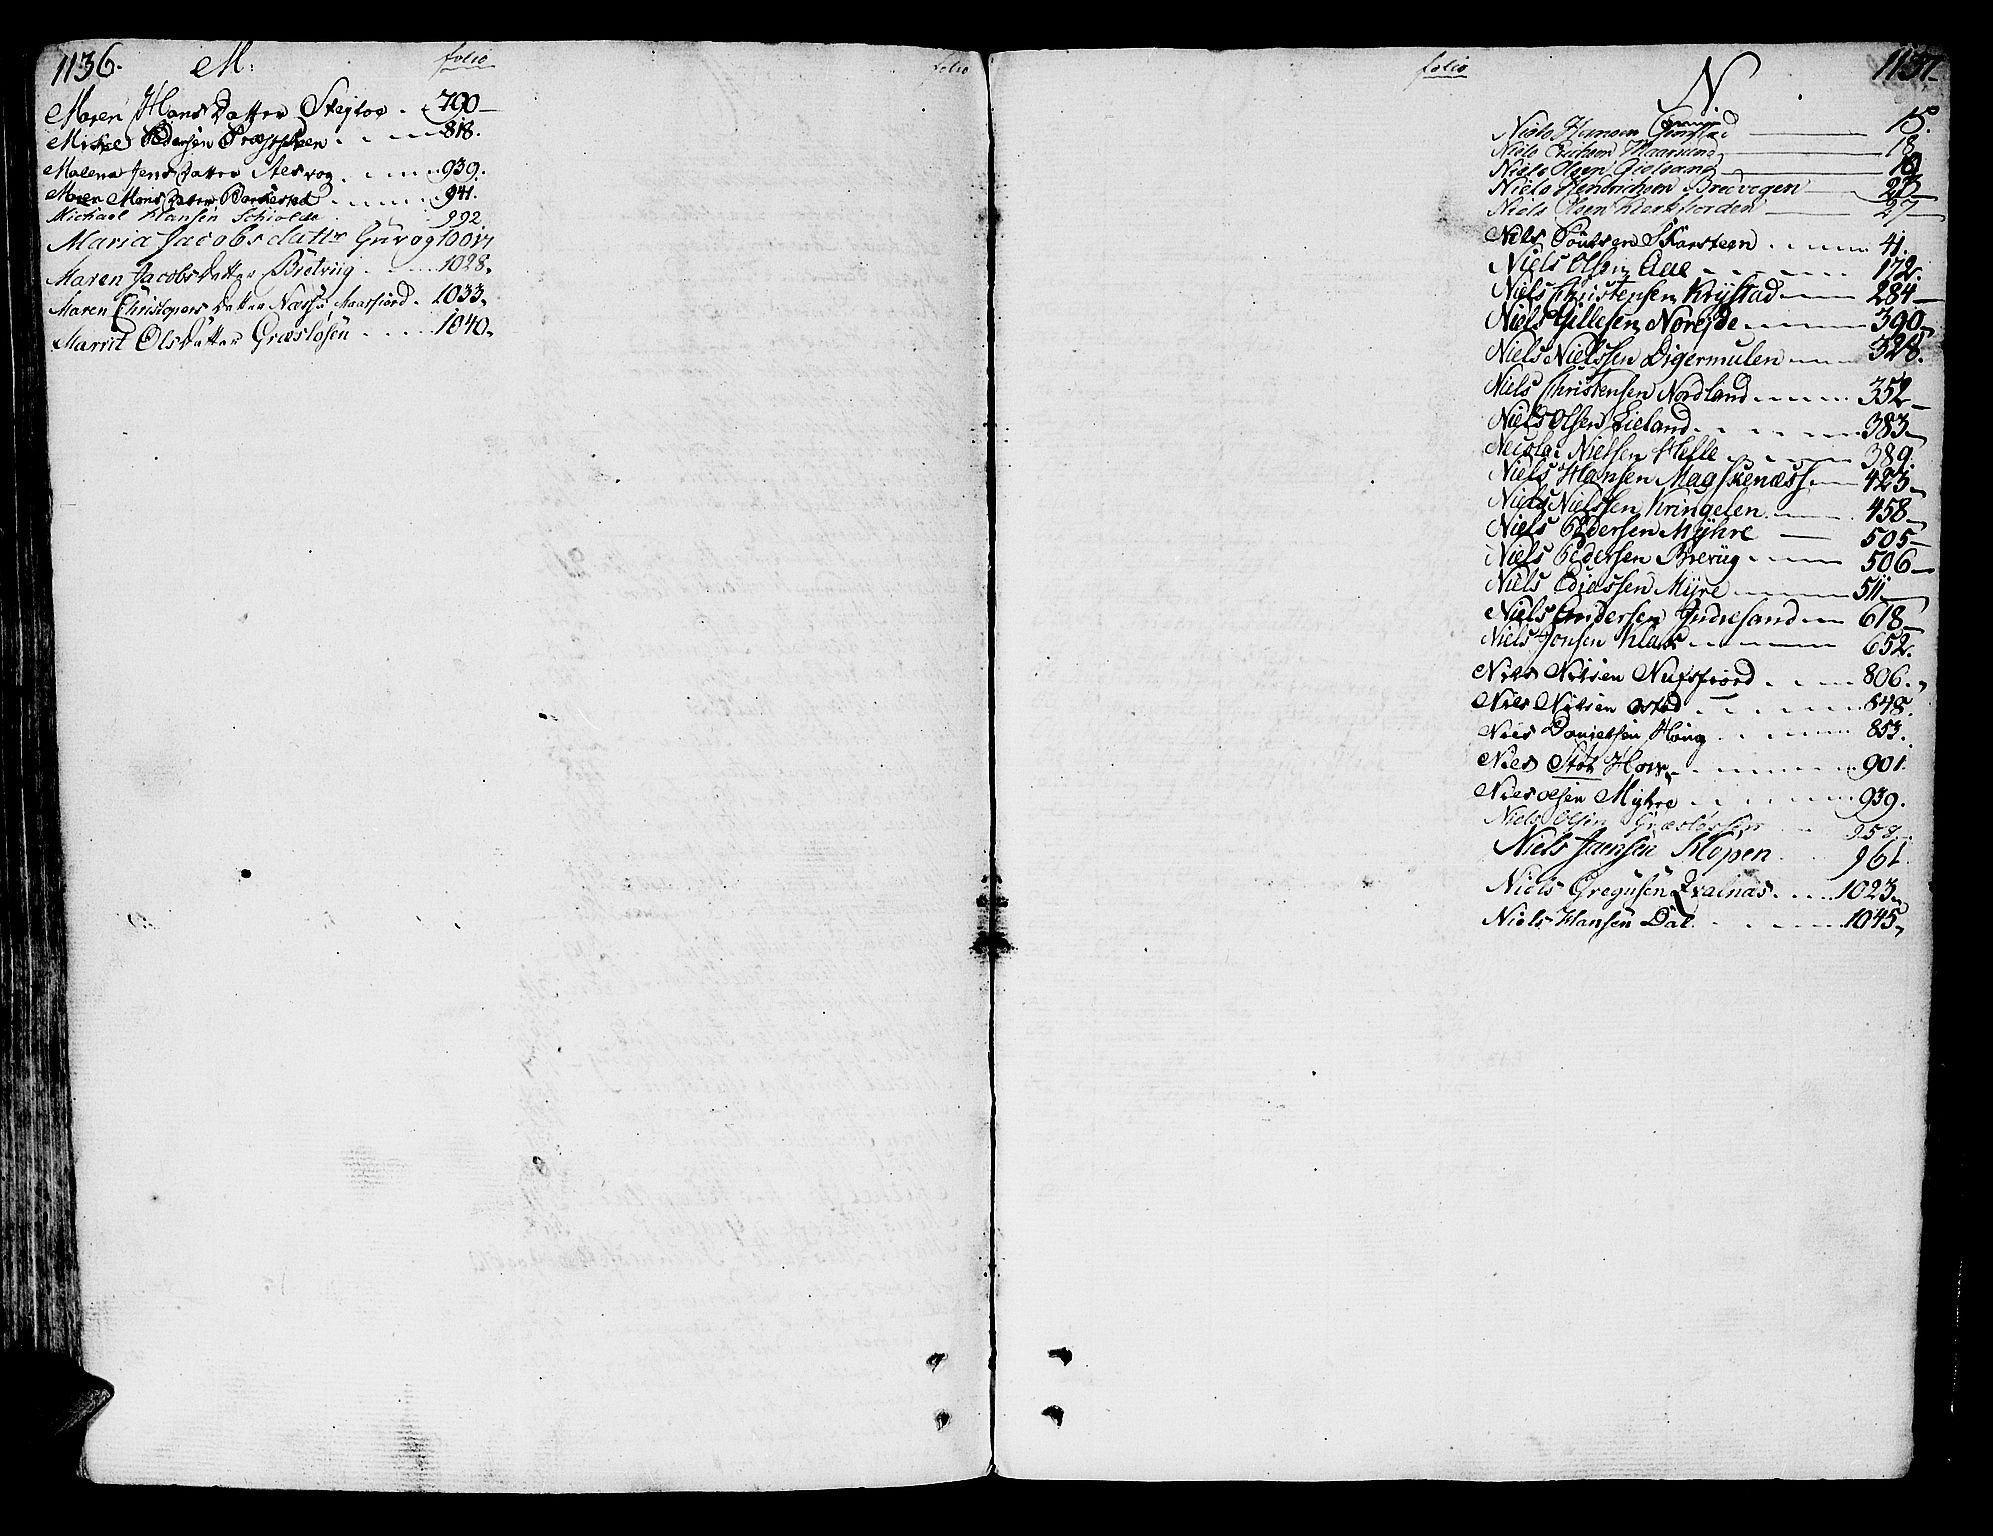 1136.
M.
folio
folio
Maren Hans Datter Stegløe . 790
Mickel Pedersen Præstskeen . . 818.
Malena Jens Datter Ales vog . . 939.
Maren Mons Datter Barkestad . . 941.
Michael Hansen Schiolde 992
Maria Jacobs datter Gurog 1001
Maren Jacobs datter Brotviig . . 1028.
Maren Christopers Datter Næss i Maarfiord . 1033.
Marrit Ols datter Græsløsen . . 1040.
folio
1137
N.
Niels Hansen 15.
Niels Erichsen Maarsund 18
Niels Olsen Gielvand 18
Niels Hendrichsen Bredvegen 23
Niels Olsen Kierkfiorden 27
Nils Poulsen Skarsteen . . 41.
Niels Olsen Aae . . 172.
Niels Christensen Krystad . . 284
Niels Gillesen Norejde . . 390
Niels Nielssen Digermulen . . 328.
Niels Christensen Nordland . . 352
Niels Olsen Lieland . . 383
Nicolai Nielsen Helle . . 389.
Niels Hansen Magskenæss . . 423
Niels Nielssen Kringelen . . 458
Niels Pedersen Myhre 505
Niels Pedersen Breviig . . 506
Niels Ediassen Myre . . 511
Niels Andersen Indresand . . 618
Niels Jonsen Klaks . . 652.
Niels Nilsen Nufsfiord . . 806.
Niels Nilsen Østad . . 848.
Niels Danielsen Houg . . 853.
Niels Støt Hov . . 901.
Niels Olsen Myhre . . 939.
Niels Olsen Græsløsen 958.
Niels Jansen Klopen . . 961.
Niels Gregusen Qvalnas . . 1023.
Niels Hansen Dal . . 1045.